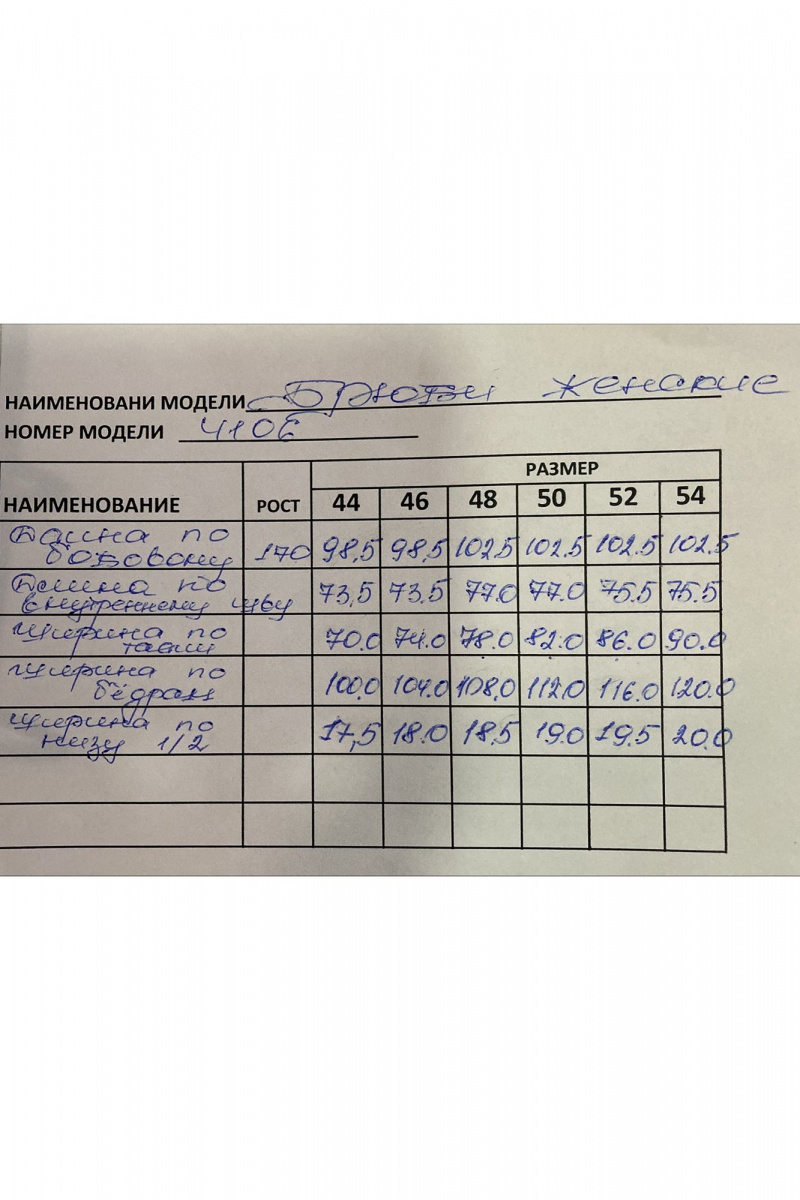 НАИМЕНОВАНИ МОДЕЛИ Брюки женские
НОМЕР МОДЕЛИ 4106
РАЗМЕР
НАИМЕНОВАНИЕ РОСТ 44 46 48 50 52 54
Длина по
боковому 170 98,5 98,5 102.5 102.5 102.5 102.5
Длина по
внутреннему шву 73,5 73.5 77.0 77.0 75.5 75.5
Ширина по
талии 70.0 74.0 78.0 82.0 86.0 90.0
Ширина по
бёдрам 100.0 104.0 108.0 112.0 116.0 120.0
Ширина по
низу 1/2 17,5 18.0 18.5 19.0 19.5 20.0